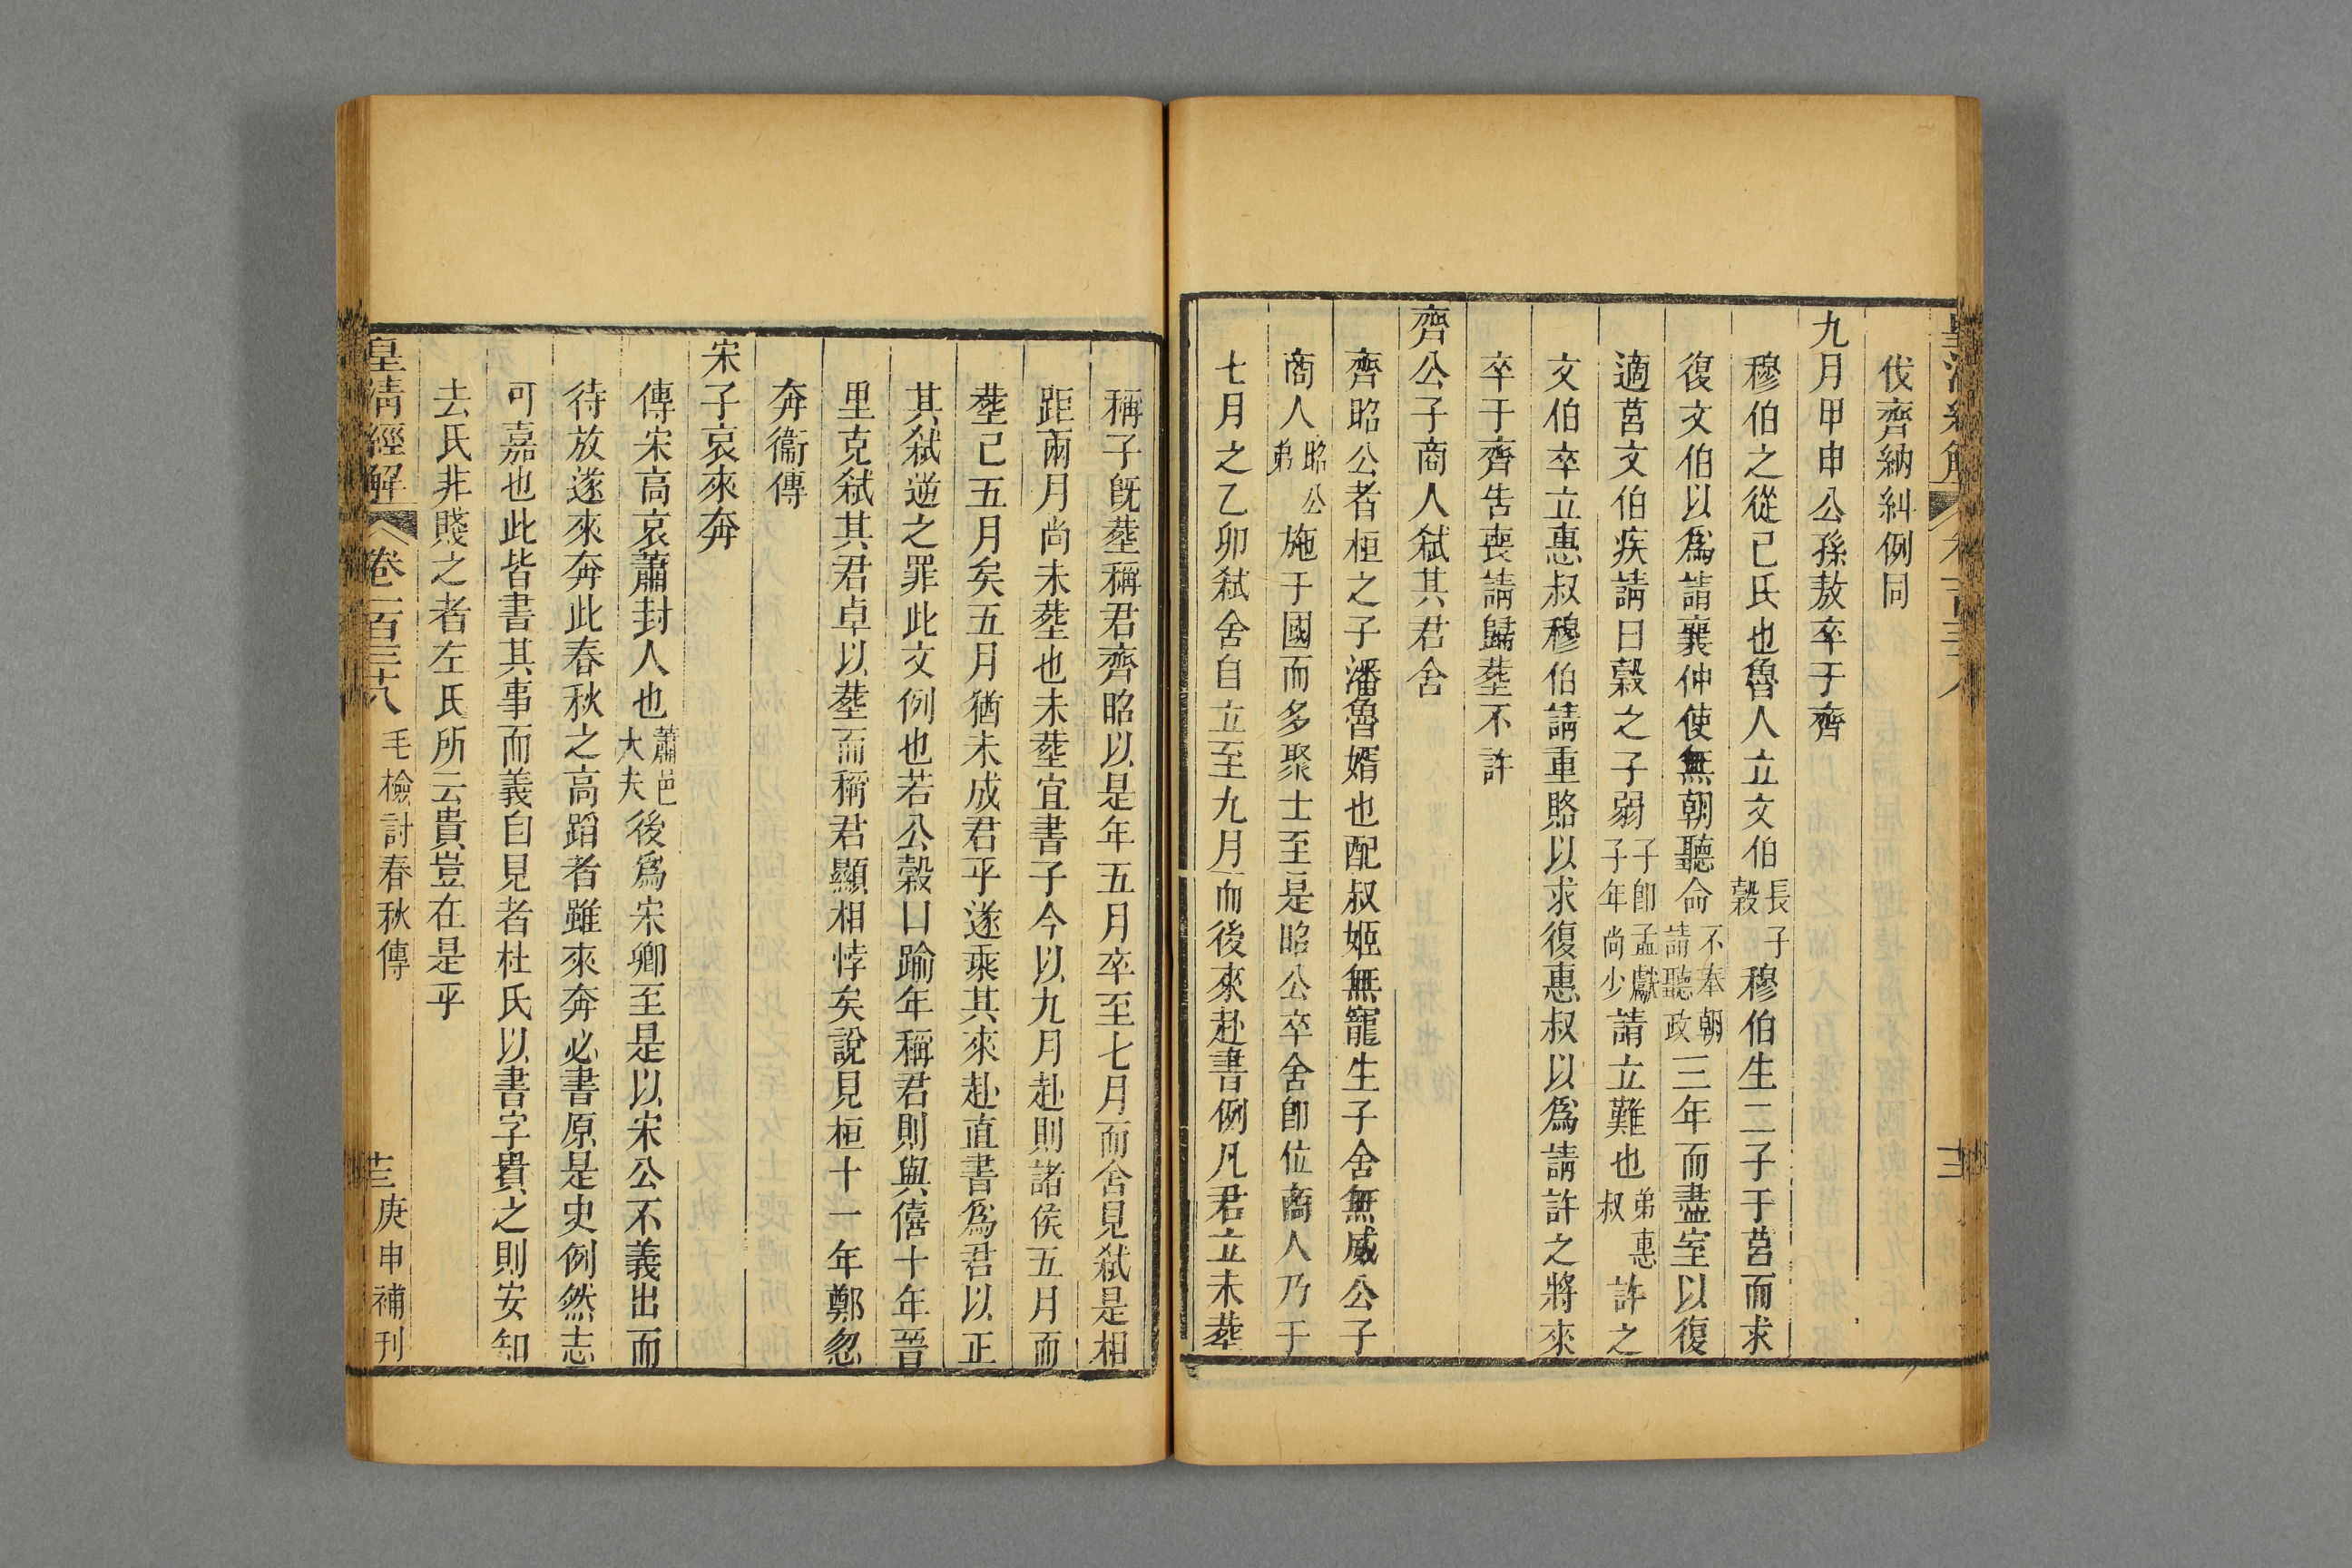 伐齊納糾例同
九月甲申公孫敖卒于齊
穆伯之從己氏也魯人立文伯長子穀穆伯生二子于莒而求
復文伯以爲請襄仲使無朝聽命不奉朝請聽政三年而盡室以復
適莒文伯疾請曰穀之子弱子卽孟獻子年尚少請立難也弟惠叔許之
文伯卒立惠叔穆伯請重賂以求復惠叔以爲請許之將來
卒于齊告喪請歸塟不許
齊公子商人弑其君舍
齊昭公者桓之子潘魯婿也配叔姬無寵生子舍無威公子
商人昭公弟施于國而多聚士至是昭公卒舍卽位商人乃于
七月之乙卯弑舍自立至九月而後來赴書例凡君立未塟
稱子旣塟稱君齊昭以是年五月卒至七月而舍見弑是相
距兩月尚未塟也未塟宜書子今以九月赴則諸侯五月而
塟已五月矣五月猶未成君乎遂乘其來赴直書爲君以正
其弑逆之罪此文例也若公穀曰踰年稱君則與僖十年晉
里克弑其君卓以塟而稱君顯相悖矣說見桓十一年鄭忽
奔衞傳
宋子哀來奔
傳宋高哀蕭封人也蕭邑大夫後爲宋卿至是以宋公不義出而
待放遂來奔此春秋之高蹈者雖來奔必書原是史例然志
可嘉也此皆書其事而義自見者杜氏以書字貴之則安知
去氏非賤之者左氏所云貴豈在是乎
皇清經解 卷一百三十八 毛檢討春秋傳 十三 庚申補刊